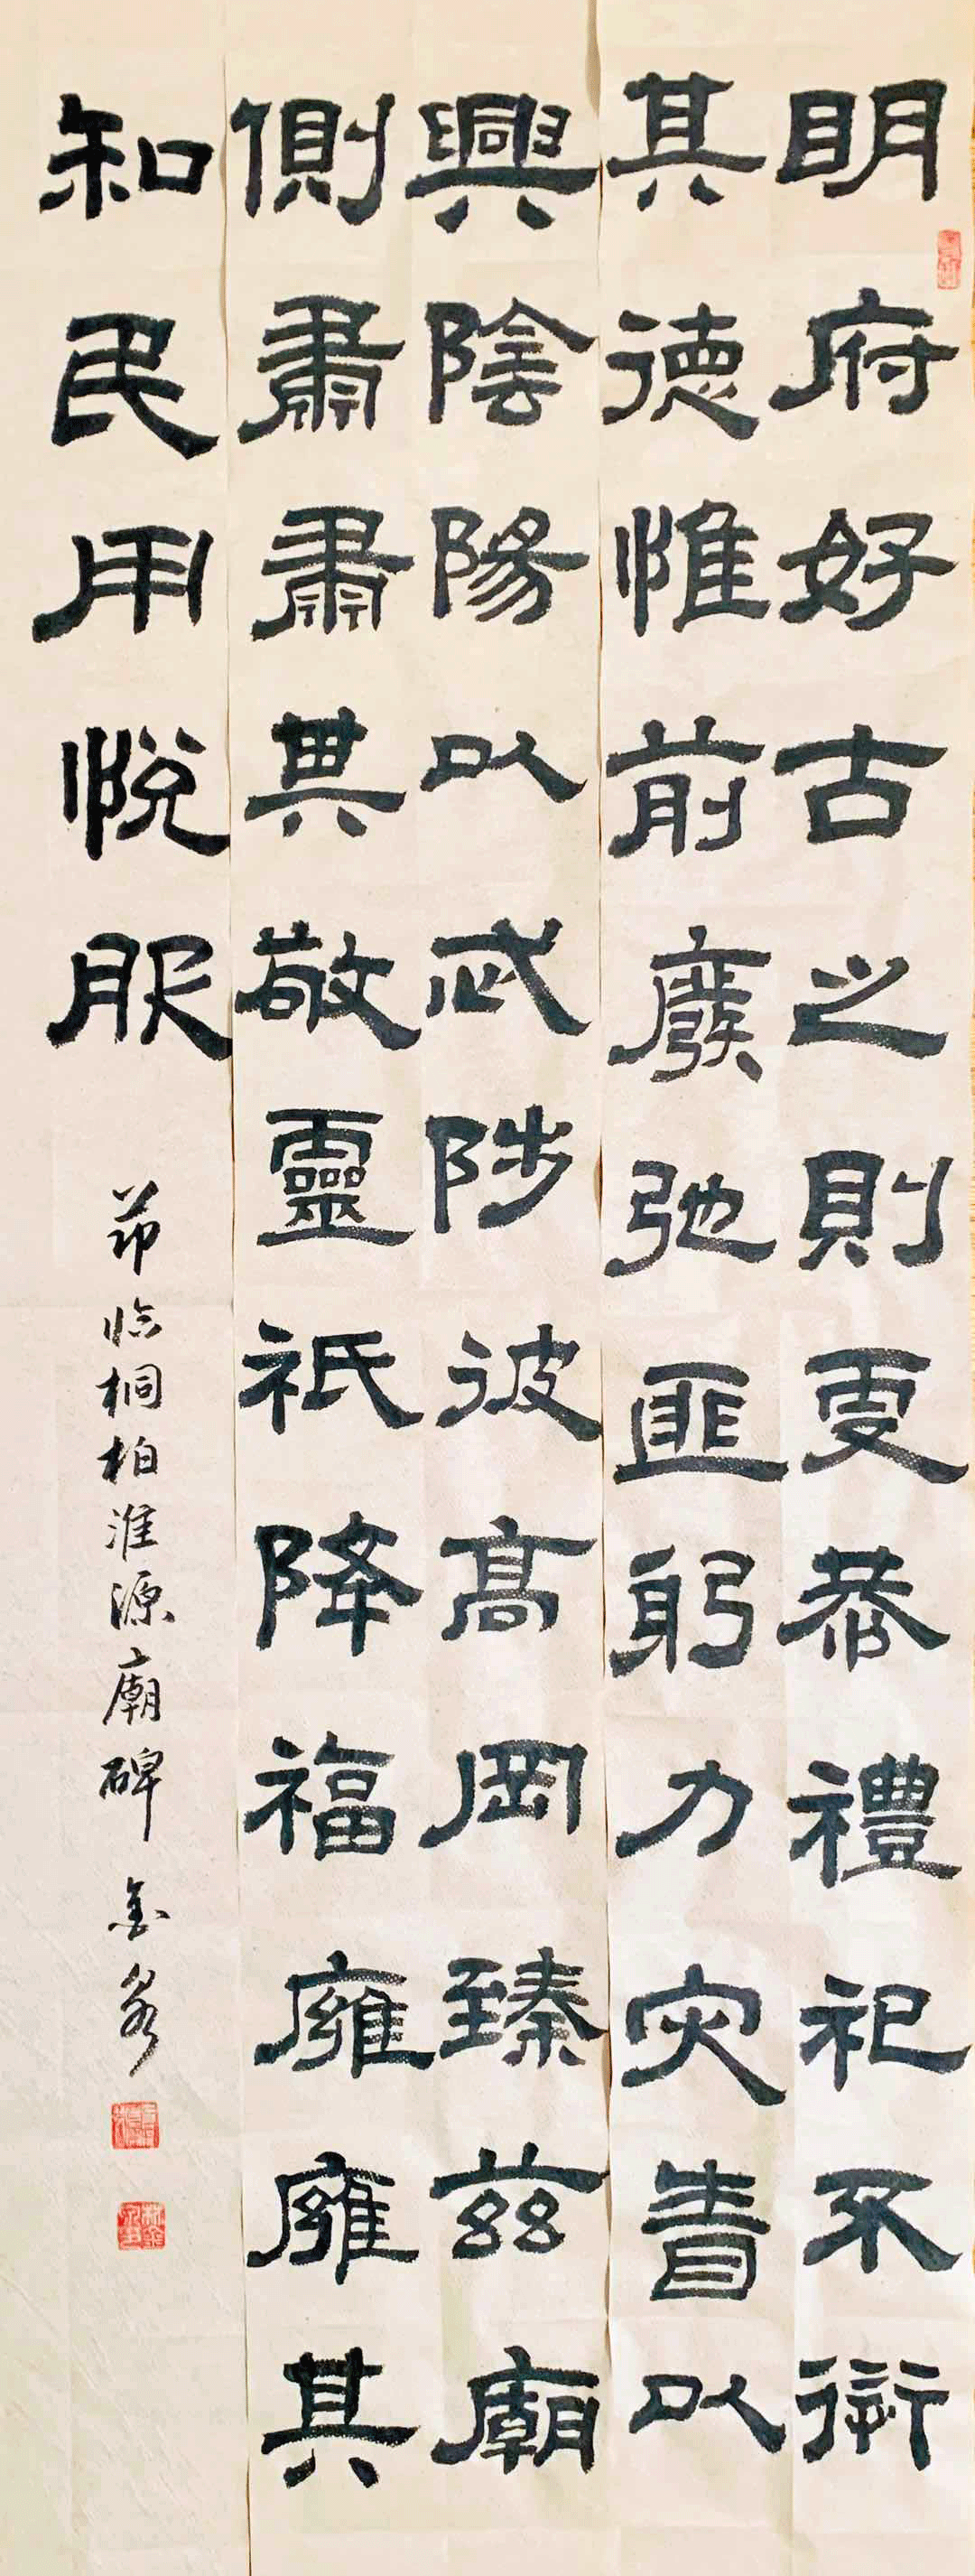 明府好古之則虔恭禮祀不愆
其德惟前廢弛匪躬力灾眚以
興陰陽以忒陟彼高岡臻兹廟
側肅肅其敬靈祇降福雍雍其
和民用悅服
節臨桐柏淮源廟碑